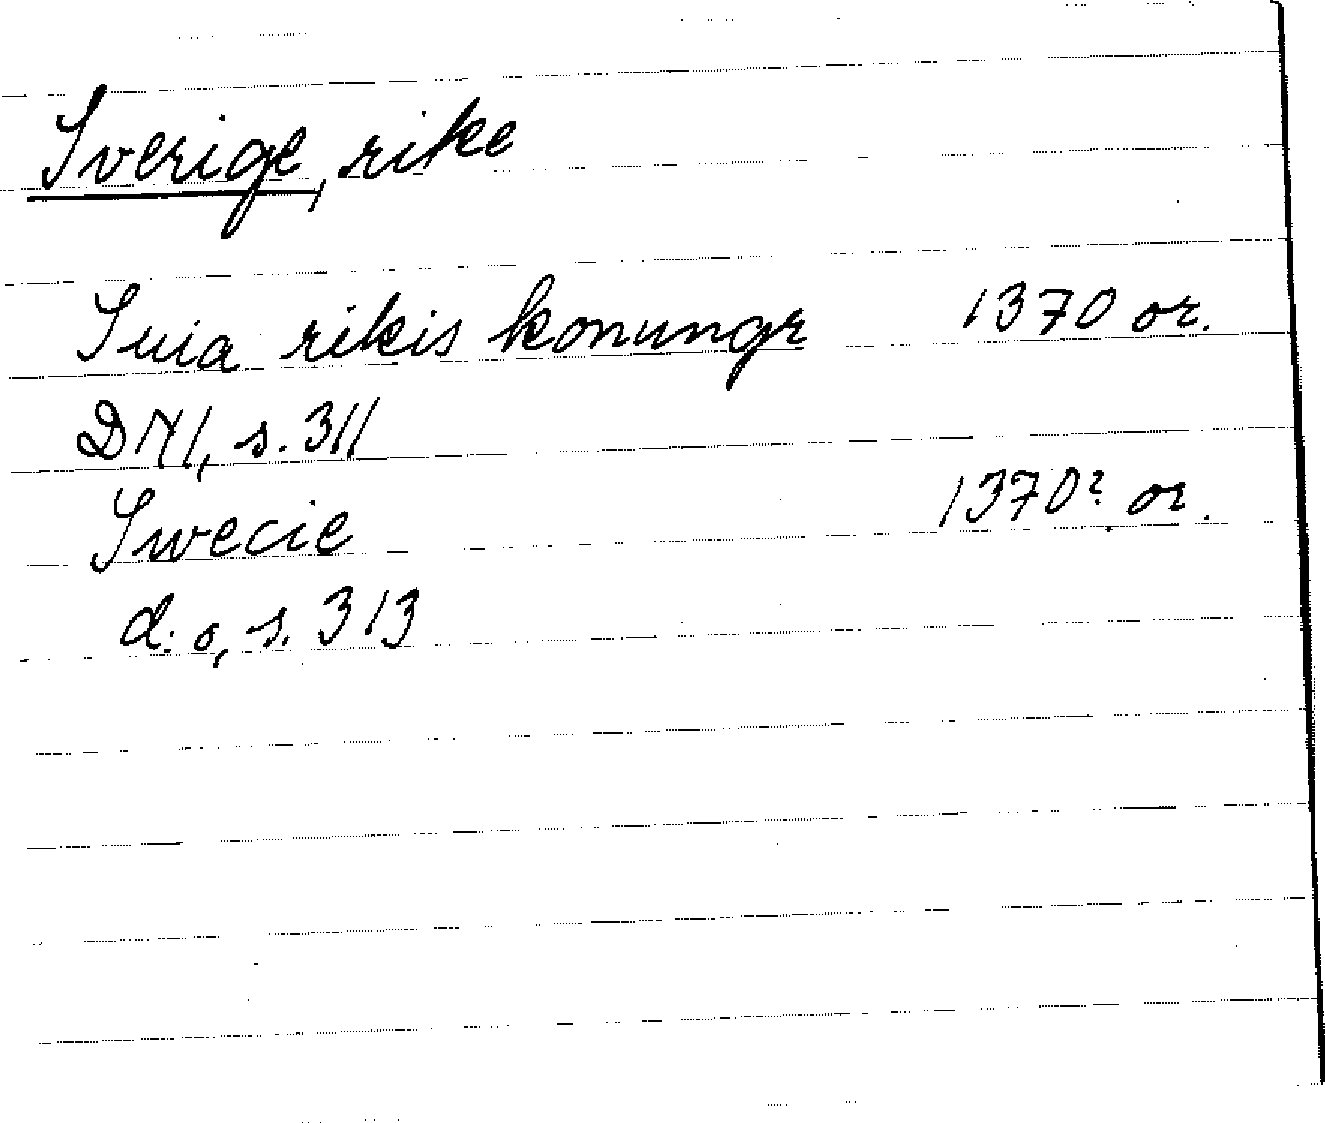 Sverige, rike
Suia rikis konungr 1370 or.
DN1, s. 311
Swecie 1370? or.
d:o, s. 313